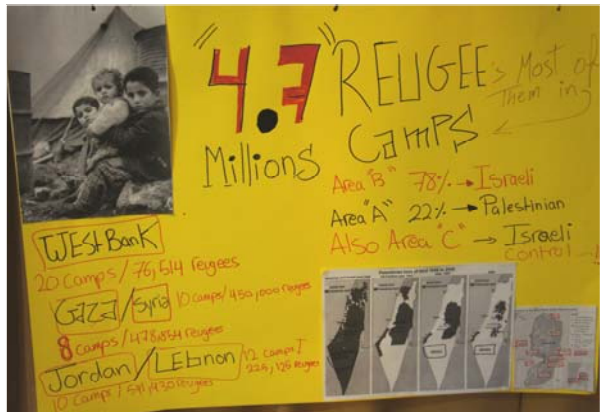 "4.7" REUGEE's Most of
Them ing
Millions CAMPS
Area "B" 78% → Israeli
Area "A" 22% → Palestinian
Also Area "C" → Israeli
control →!
WEST BANK
20 camps / 76,514 reugees
GAZA / Syria 10 camps / 450,000 reugees
8 camps / 478,854 reugees
Jordan / LEbnon / 12 camps /
225,125 reugees
10 camps / 541,430 reugees